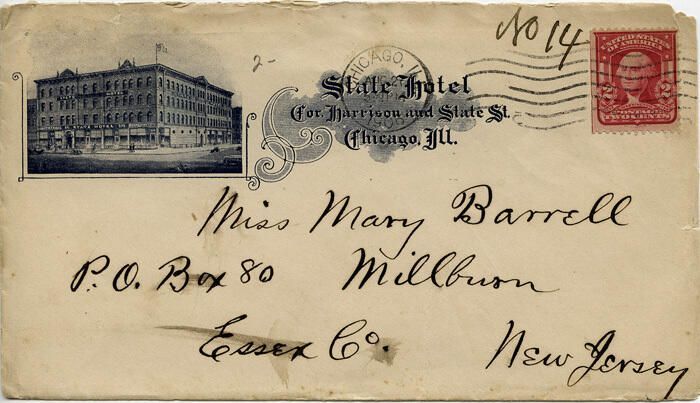 No 14
2-
CHICAGO, ILL
State Hotel
Cor. Harrison and State St.
Chicago, Ill.
UNITED STATES
OF AMERICA
POSTAGE
TWO CENTS
Miss Mary Barrell
P.O. Box 80 Millburn
Essex Co. New Jersey